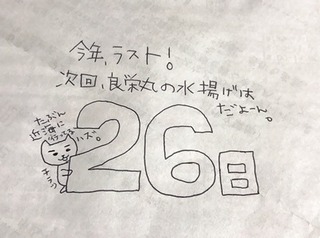 今年、ラスト!
次回、良栄丸の水揚げは
26日
だよーん。
たぶん
近海に
ハズ。
チラッ